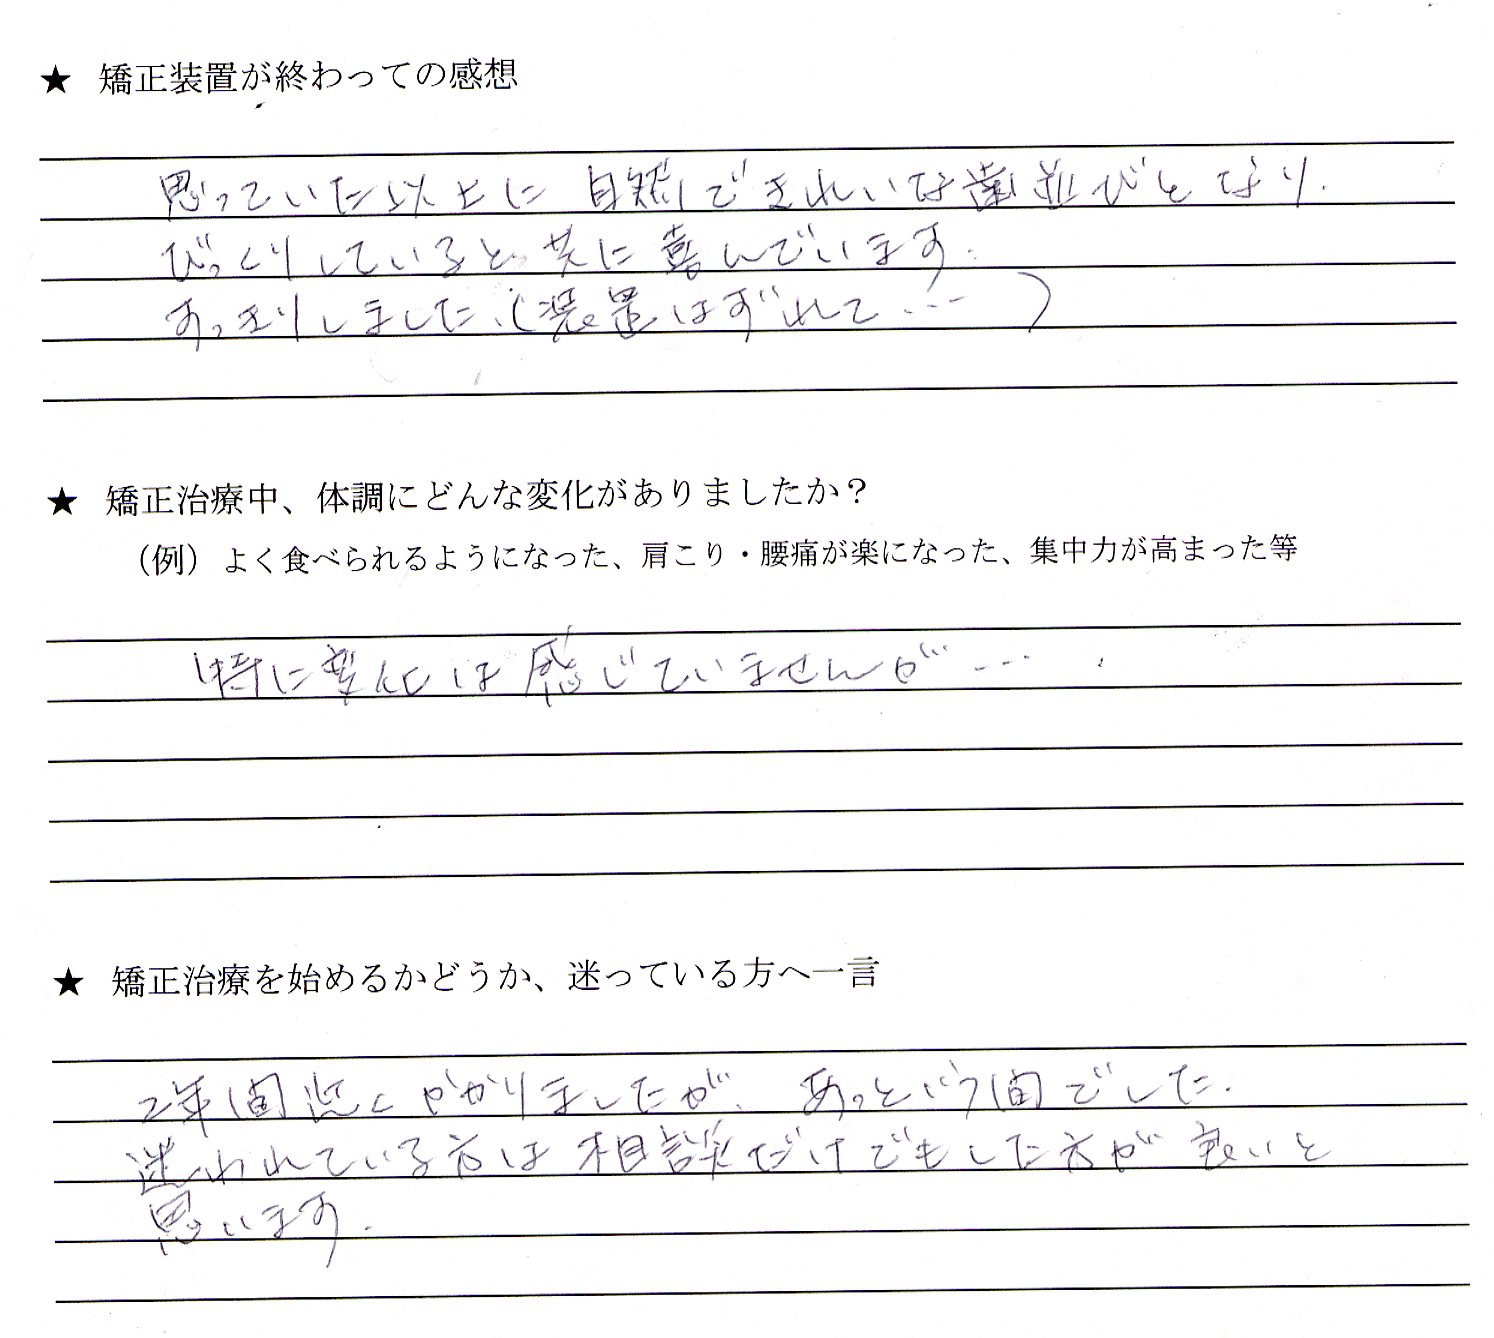 ★ 矯正装置が終わっての感想
思っていた以上に自然できれいな歯並びとなり、
びっくりしていると共に喜んでいます。
すっきりしました。(装置はずれて…)
★ 矯正治療中、体調にどんな変化がありましたか？
（例）よく食べられるようになった、肩こり・腰痛が楽になった、集中力が高まった等
特に変化は感じていませんが…。
★ 矯正治療を始めるかどうか、迷っている方へ一言
2年間近くかかりましたが、あっという間でした。
迷われている方は相談だけでもした方が良いと
思います。